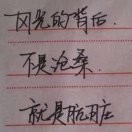 风光的背后.
不是沧桑.
就是肮脏